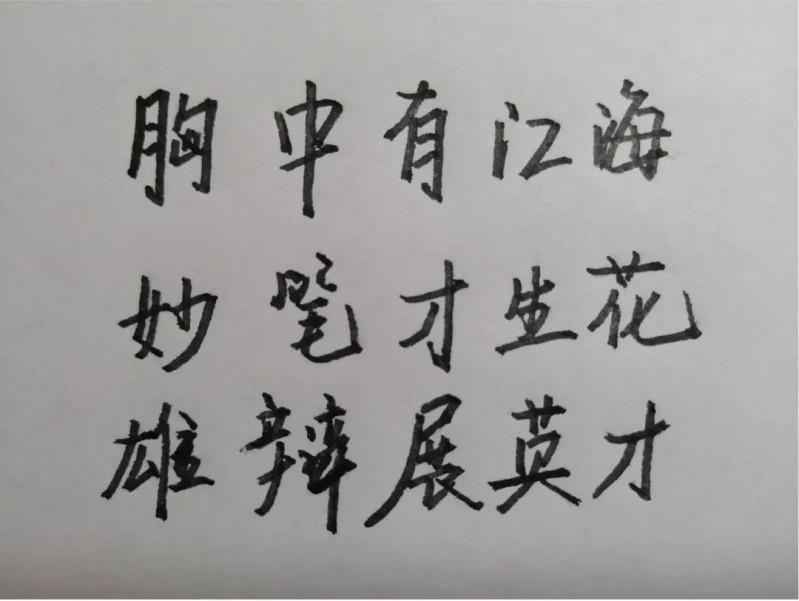 胸中有江海
妙笔才生花
雄辩展英才